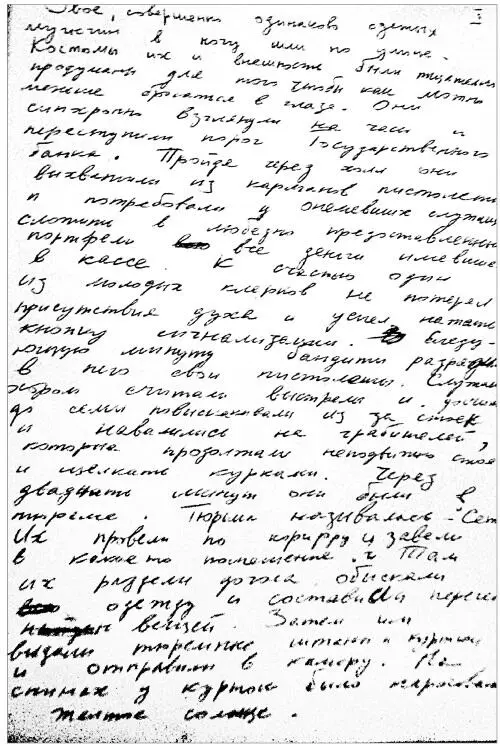 Двое, совершенно одинаково одетых
мужчин в ногу шли по улице.
Костюмы их и внешность были тщательно
продуманы для того чтобы как можно
меньше бросаться в глаза. Они
синхронно взглянули на часы и
переступили порог Государственного
банка. Пройдя через холл они
выхватили из карманов пистолеты
и потребовали у онемевших служащих
сложить в любезно предоставленные
портфели все деньги имевшиеся
в кассе. К счастью один
из молодых клерков не потерял
присутствия духа и успел нажать
кнопку сигнализации. В следу-
ющую минуту бандиты разрядили
в него свои пистолеты. Служащие
хором считали выстрелы и досчитав
до семи повыскакивали из за стоек
и навалились на грабителей,
которые продолжали неподвижно стоять
и щелкать курками. Через
двадцать минут они были в
тюрьме. Тюрьма называлась
Их провели по коридору и завели
в какое то помещение. Там
их раздели догола обыскали
одежду и составили перечень
вещей. Затем им
выдали тюремные штаны и куртки
и отправили в камеру. На
спинах у курток было нарисовано
желтое солнце.